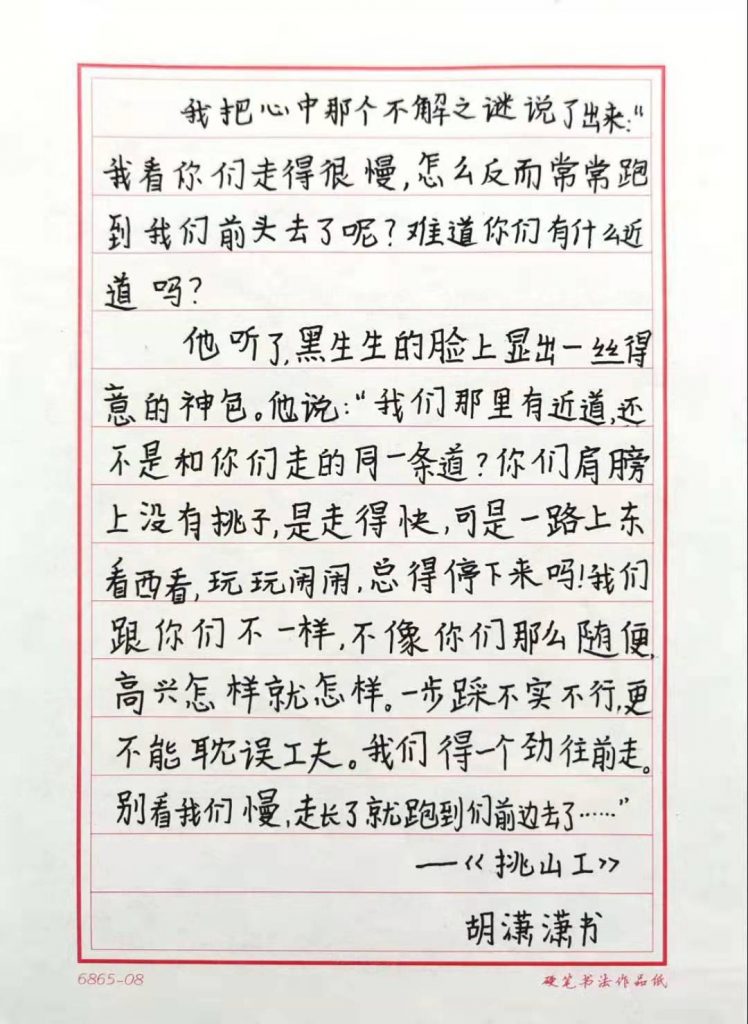 我把心中那个不解之谜说了出来:“
我看你们走得很慢,怎么反而常常跑
到我们前头去了呢?难道你们有什么近
道吗?
他听了,黑生生的脸上显出一丝得
意的神包。他说:“我们那里有近道,还
不是和你们走的同一条道?你们肩膀
上没有挑子,是走得快,可是一路上东
看西看,玩玩闹闹,总得停下来吗!我们
跟你们不一样,不像你们那么随便,
高兴怎样就怎样。一步踩不实不行,更
不能耽误工夫。我们得一个劲往前走。
别看我们慢,走长了就跑到们前边去了……”
—《挑山工》
胡潇潇书
6865-08
硬笔书法作品纸